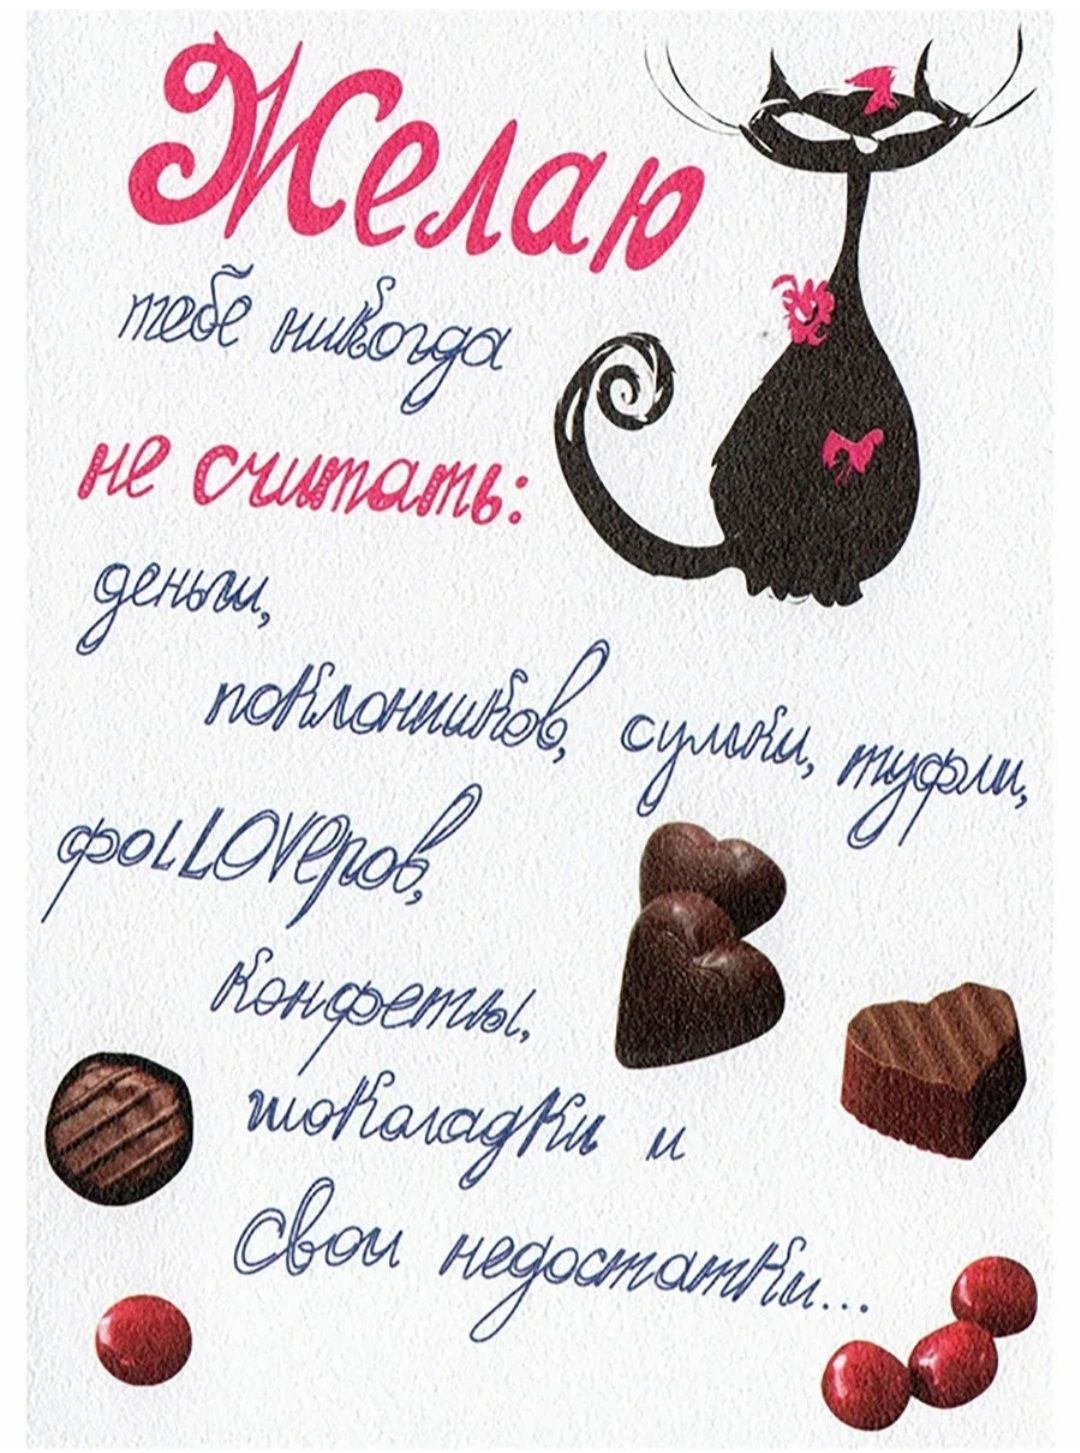 Желаю
тебе никогда
не считать:
деньги,
поклонников, сумки, туфли,
фолLOVEров,
конфеты,
шоколадки и
свои недостатки...